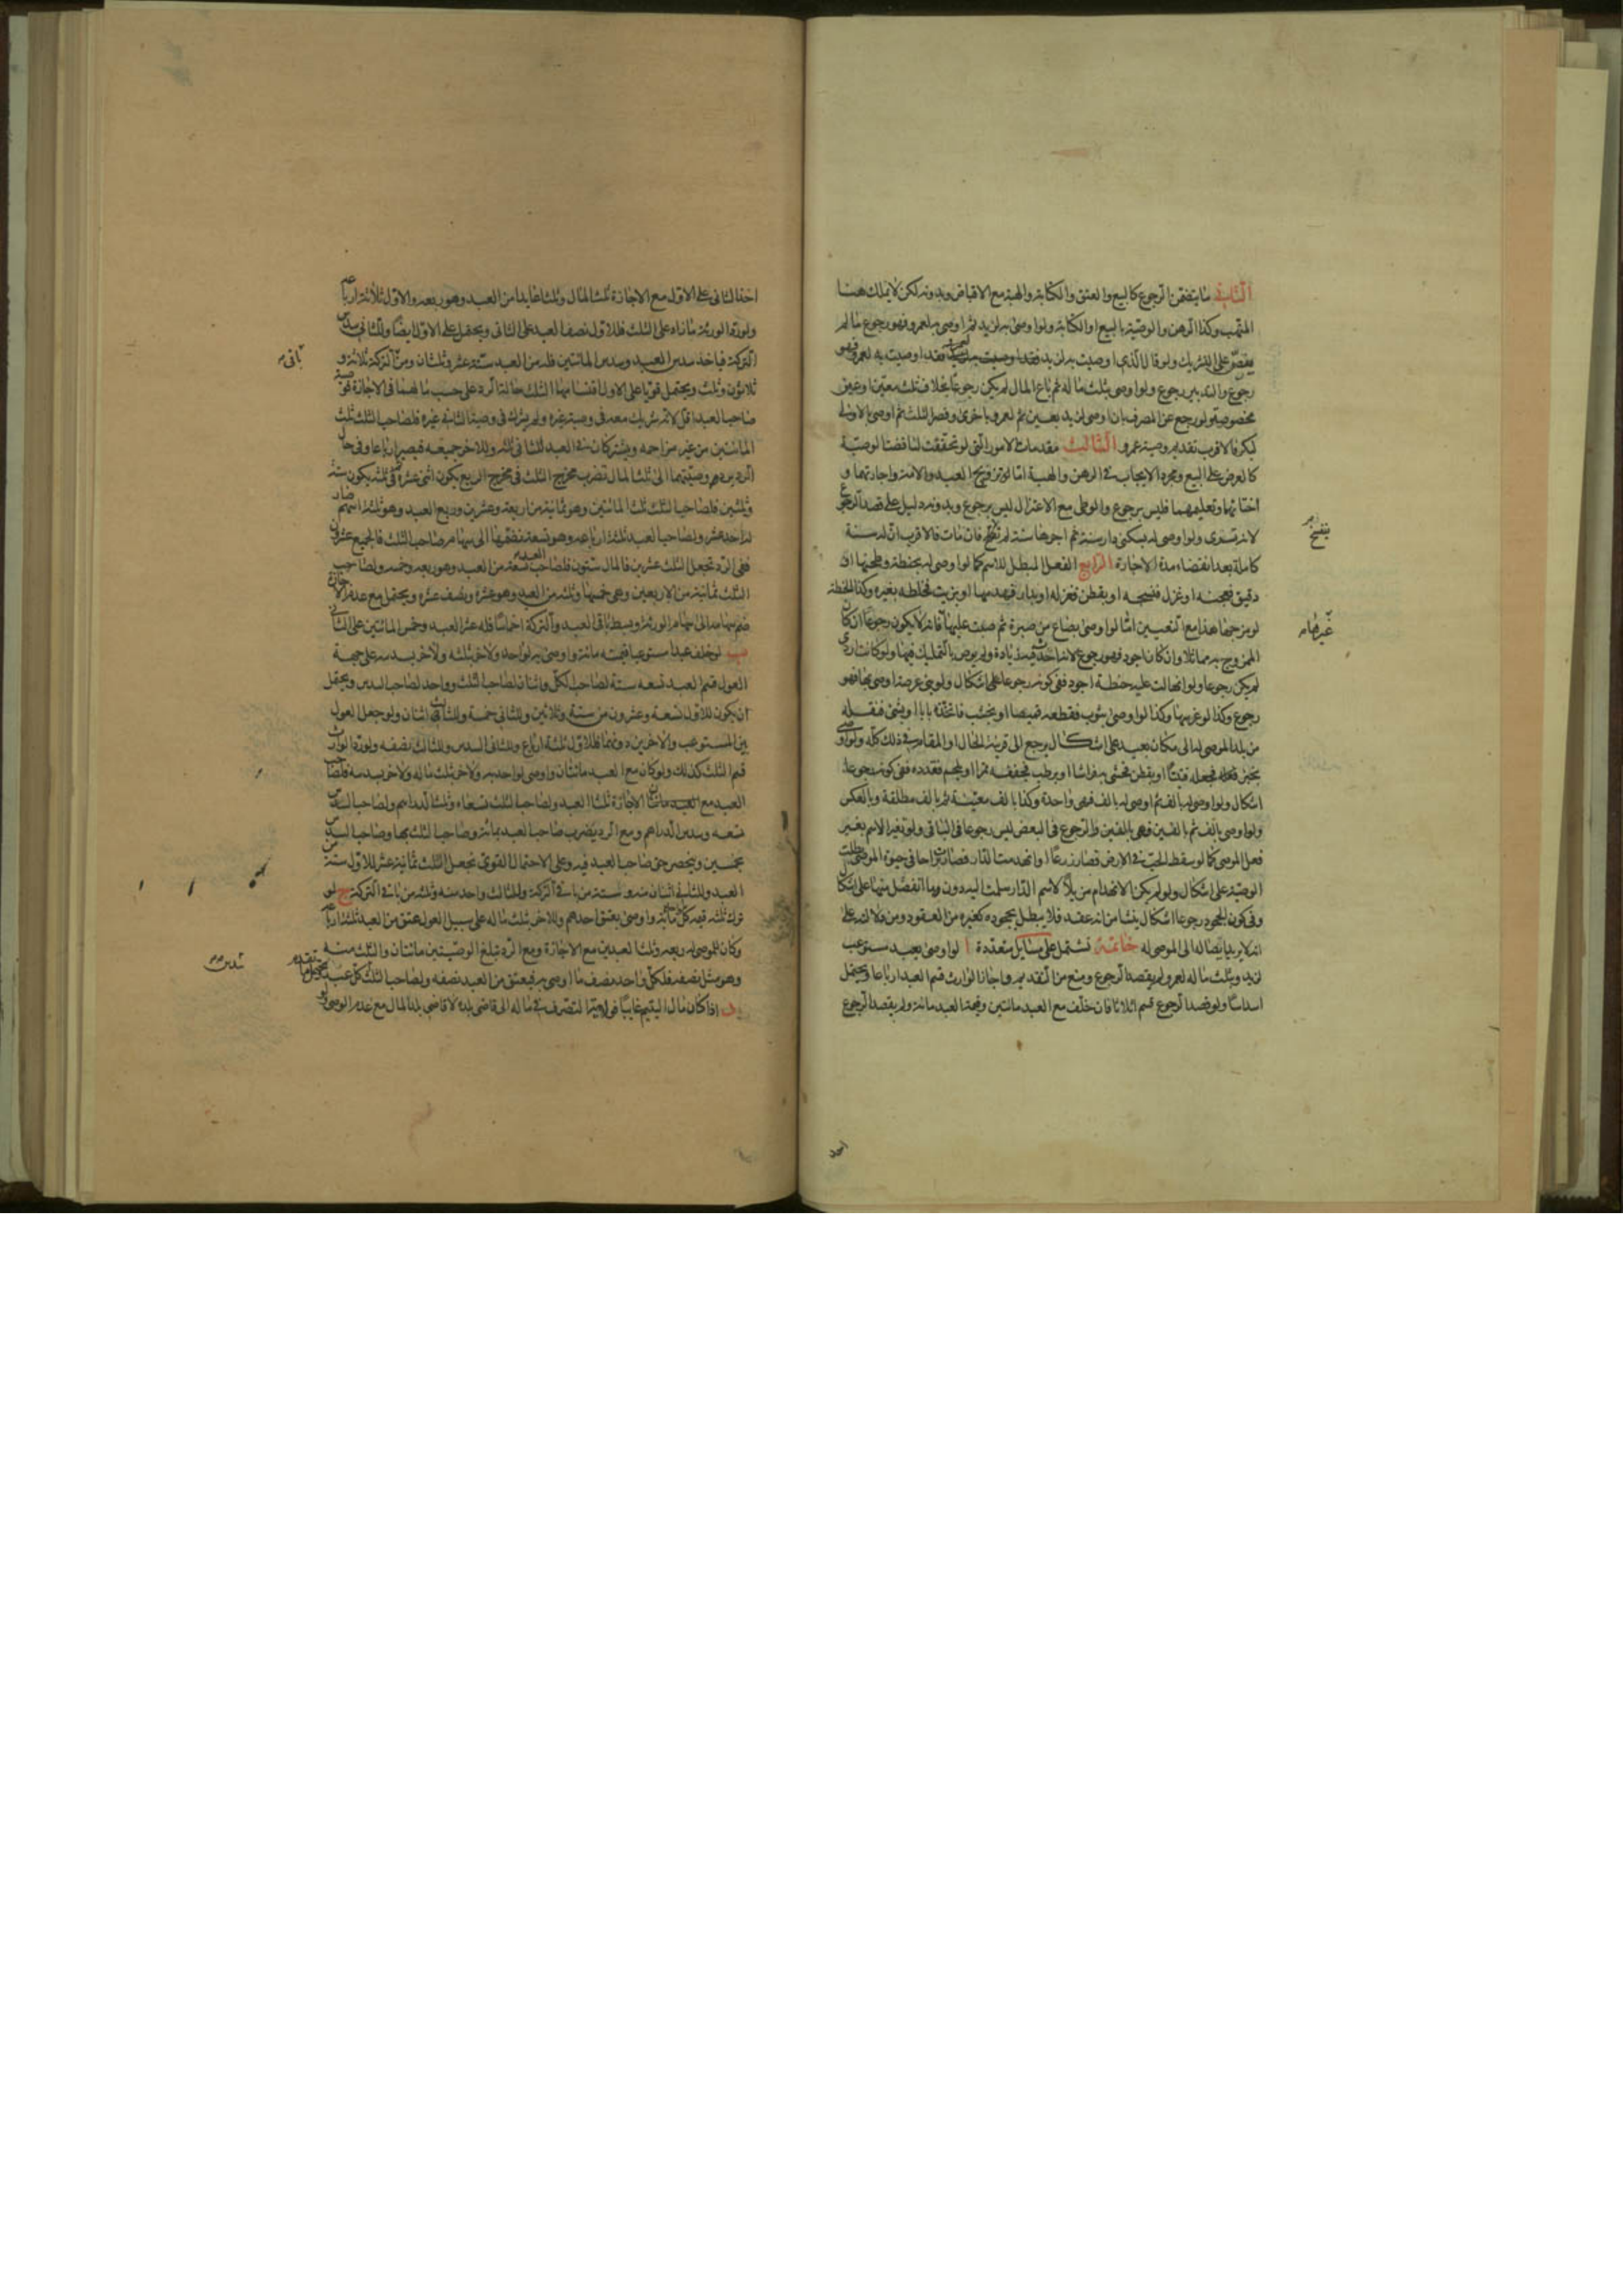 الثاني ما يتضمن الرجوع كالبيع والعتق والكتابة والهبة مع الاقباض وبدونه لكن لا يملك هنا
المتهب وكذا الرهن والوصية بالبيع او الكتابة ولو اوصى به لزيد ثم اوصى به لعمرو فهو رجوع ما لم
ينص على التشريك ولو قال الذي اوصيت به لزيد فقد اوصيت به لعمرو فهو
رجوع والتدبير رجوع ولو اوصى بثلث ماله ثم باع المال لم يكن رجوعا بخلاف ثلث معين او عين
مخصوصة ولو رجع عن المصرف بان اوصى لزيد بعين ثم لعمرو باخرى وقصر الثلث ثم اوصى بالاولى
لبكر فالاقرب تقديم وصية عمرو الثالث مقدمات الامور التي لو تحققت لناقضت الوصية
كالعرض على البيع ومجرد الايجاب في الرهن والهبة اما تزويج العبد والامة واجارتهما و
ختانهما وتعليمهما فليس برجوع والوطي مع الاعتزال ليس برجوع وبدونه دليل على قصد الرجوع
لانه تسرى ولو اوصى له بسكنى دار سنة ثم اجرها سنة لم ينفسخ فان مات فالاقرب ان له سنة
كاملة بعد انقضاء مدة الاجارة الرابع الفعل المبطل للاسم كما لو اوصى له بحنطة وطحنها او
دقيق فعجنه او غزل فنسجه او بقطن فغزله او بدار فهدمها او بزيت فخلطه بغيره وكذا الحنطة
لو مزجها هذا مع التعيين اما لو اوصى بصاع من صبرة ثم صب عليها فانه لا يكون رجوعا ان كان
الممزوج به مماثلا وان كان اجود فهو رجوع لانه احدث فيه زيادة ولم يرض بالتمليك فيها ولو كانت اردى
لم يكن رجوعا ولو انهالت عليه حنطة اجود ففي كونه رجوعا على اشكال ولو بنى عرصة اوصى بها فهو
رجوع وكذا لو غرسها وكذا لو اوصى بثوب فقطعه قميصا او بخشب فاتخذه بابا او بشئ فنقله
من بلد الموصى له الى مكان بعيد على اشكال يرجع الى قرينة الحال او المقام في ذلك كله ولو اوصى
بخبز فجعله فتيتا او بقطن فحشى به فراشا او برطب فجففه تمرا او بلحم فقدده ففي كونه رجوعا
اشكال ولو اوصى له بالف ثم اوصى له بالف فهي واحدة وكذا بالف معينة ثم بالف مطلقة وبالعكس
ولو اوصى بالف ثم بالفين فهي بالفين والرجوع في البعض ليس رجوعا في الباقي ولو تغير الاسم بغير
فعل الموصي كما لو سقط الحب في الارض فصار زرعا او انهدمت الدار فصارت براحا في حيوة الموصي بطلت
الوصية على اشكال ولو لم يكن الانهدام مزيلا لاسم الدار سلمت اليه دون ما انفصل منها على اشكال
وفي كون الجحود رجوعا اشكال ينشا من انه عقد فلا يبطل بجحوده كغيره من العقود ومن دلالته على
انه لا يريد ايصاله الى الموصى له خاتمة تشتمل على مسايل متعددة ا لو اوصى بعبد مستوعب
لزيد وبثلث ماله لعمرو لم يقصد الرجوع ومنع من التقديم واجاز الوارث قسم العبد ارباعا ويحتمل
اسداسا ولو قصد الرجوع قسم اثلاثا فان خلف مع العبد مائتين وقيمة العبد مائة ولم يقصد الرجوع
ينفسخ
غيرها
اخذ
اخذ الثاني على الاول مع الاجازة ثلث المال وثلثا من العبد وهو ربعه والاول ثلاثة ارباعه
ولو رد الورثة ما زاد على الثلث فللاول نصف العبد على الثاني ويحتمل على الاول ايضا وللثاني سدس
التركة فياخذ سدس العبد وسدس المائتين فله من العبد ستة عشر وثلثان ومن التركة ثلاثة و
ثلاثون وثلث ويحتمل قويا على الاول اقتسامهما الثلث حالة الرد على حسب ما لهما في الاجازة فوصية
صاحب العبد اقل لانه شريك معه في وصيته غيره ولم يشرك في وصية الثاني غيره فلصاحب الثلث ثلث
المائتين من غير مزاحمة ويشتركان في العبد للثاني ثلثه وللاخر جميعه فيصير ارباعا وفي حال
الرد يردهم وصيتهما الى ثلث المال نضرب مخرج الثلث في مخرج الربع يكون اثنى عشر ثم في ثلثة يكون ستة
وثلثين فلصاحب الثلث ثلث المائتين وهو ثمانية من اربعة وعشرين وربع العبد وهو ثلثة اسهم صار
له احد عشر ولصاحب العبد ثلثة ارباعه وهو تسعة نضمها الى سهام صاحب الثلث فالجميع عشرون
ففي الرد نجعل الثلث عشرين فالمال ستون فلصاحب العبد تسعة من العبد وهو ربعه وخمسه ولصاحب
الثلث ثمانية من الاربعين وهي خمسها وثلثة من العبد وهو عشره ونصف عشره ويحتمل مع عدم الاجازة
لو خلف عبدا مستوعبا قيمته مائة واوصى به لواحد ولاخر بثلثه ولاخر بسدسه على جهة
العول قسم العبد تسعة ستة لصاحب الكل واثنان لصاحب الثلث وواحد لصاحب السدس ويحتمل
ان يكون للاول تسعة وعشرون من ستة وثلاثين وللثاني خمسة وللثالث اثنان ولو جعل العول
بين المستوعب والاخرين دونهما فللاول ثلثة ارباع وللثاني السدس وللثالث نصفه ولو رد الوارث
قسم الثلث كذلك ولو كان مع العبد مائتان واوصى لواحد به ولاخر بثلث ماله ولاخر بسدسه فلصاحب
العبد مع الاجازة ثلثا العبد ولصاحب الثلث تسعاه وثلث الدراهم ولصاحب السدس
تسعه وسدس الدراهم ومع الرد يضرب صاحب العبد بمائة وصاحب الثلث بها وصاحب السدس
بخمسين وينحصر حق صاحب العبد فيه وعلى الاحتمال القوي نجعل الثلث ثمانية عشر للاول ستة من
العبد وللثاني اثنان منه وستة من باقي التركة وللثالث واحد منه وثلثة من باقي التركة ج لو
ترك ثلثة قيمة كل مائة واوصى بعتق احدهم وللاخر بثلث ماله على سبيل العول عتق من العبد ثلثة ارباعه
وكان للموصى له ربعه وثلثا العبدين مع الاجازة ومع الرد تبلغ الوصيتين مائتان والثلث مائة
وهو مثل نصفه فلكل واحد نصف ما اوصى به فيعتق من العبد نصفه ولصاحب الثلث من كل عبد
د اذا كان مال اليتيم غايبا فولاية التصرف في ماله الى قاضي بلده لا قاضي بلد المال مع عدم الوصي
باقي
سدس